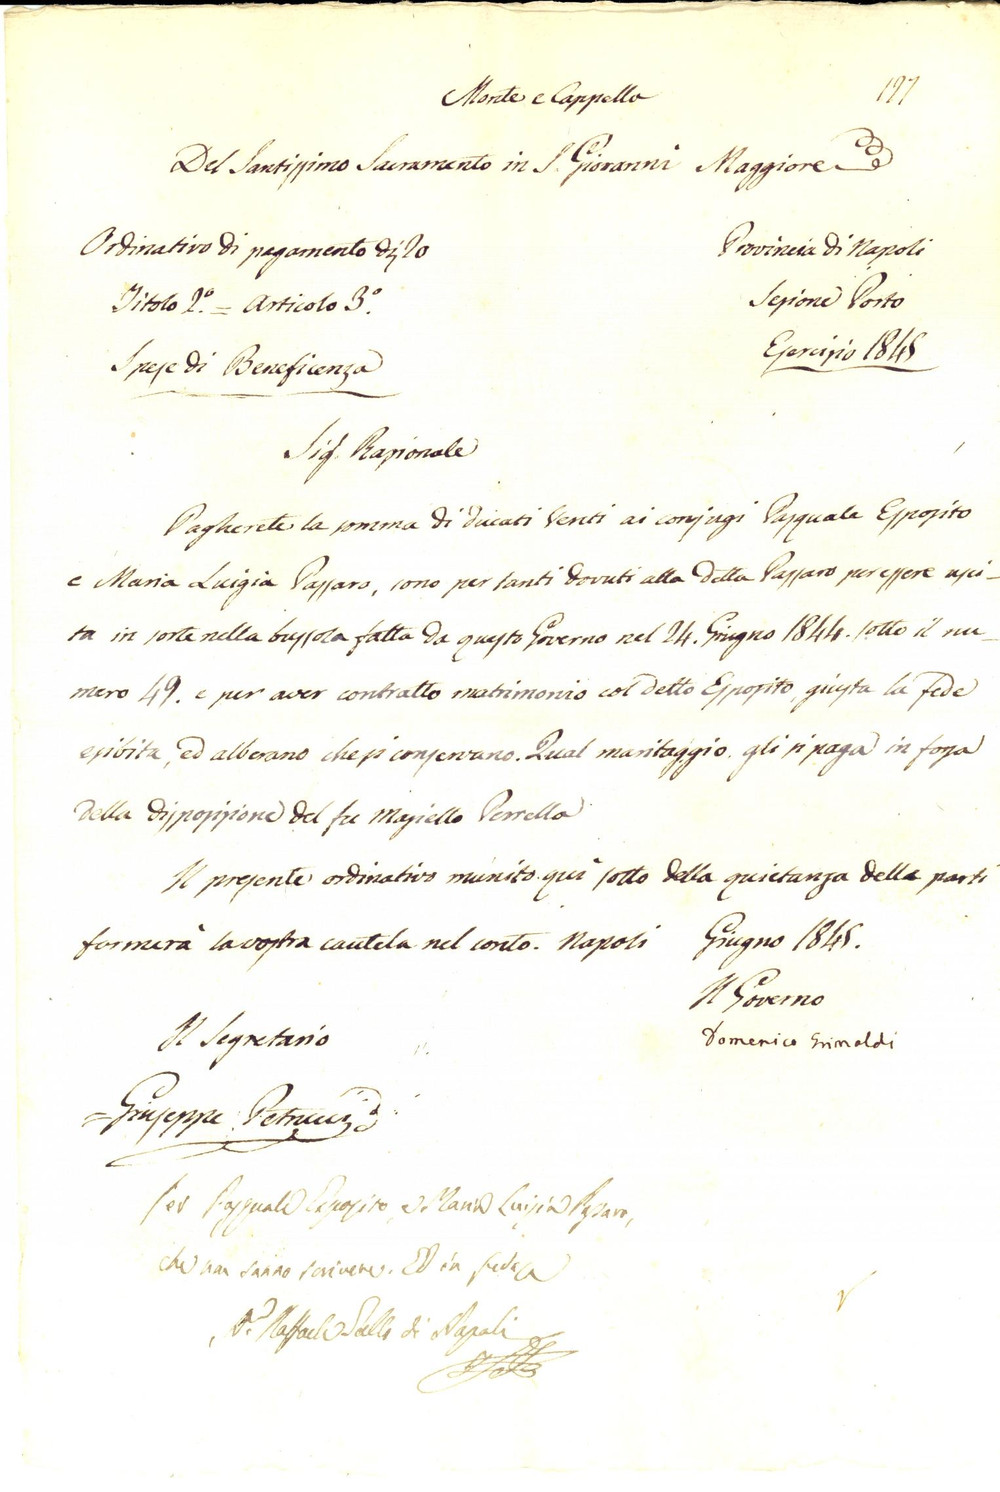 197
Monte e Cappella
Del Santissimo Sacramento in S. Giovanni Maggiore
Ordinativo di pagamento di 20
Provincia di Napoli
Titolo 2º = Articolo 3º.
Sezione Porto
Spese di Beneficenza
Esercizio 1845
Sig. Razionale
Pagherete la somma di ducati venti ai conjugi Pasquale Esposito
e Maria Luigia Passaro, sono per tanti dovuti alla detta Passaro per essere usci-
ta in sorte nella bussola fatta da questo Governo nel 24. Giugno 1844. sotto il nu-
mero 49. e per aver contratto matrimonio col detto Esposito, giusta la fede
esibita, ed alberano che si conservano. Qual maritaggio gli si paga in forza
della disposizione del fu Masiello Perrella
Il presente ordinativo munito quì sotto della quietanza della parti
formerà la vostra cautela nel conto. Napoli Giugno 1845.
Il Governo
Domenico Grimaldi
Il Segretario
= Giuseppe Petrucci
Per Pasquale Esposito, e Maria Luigia Passaro,
che non sanno scrivere. Ed in fede
Nr. Raffaele di Napoli